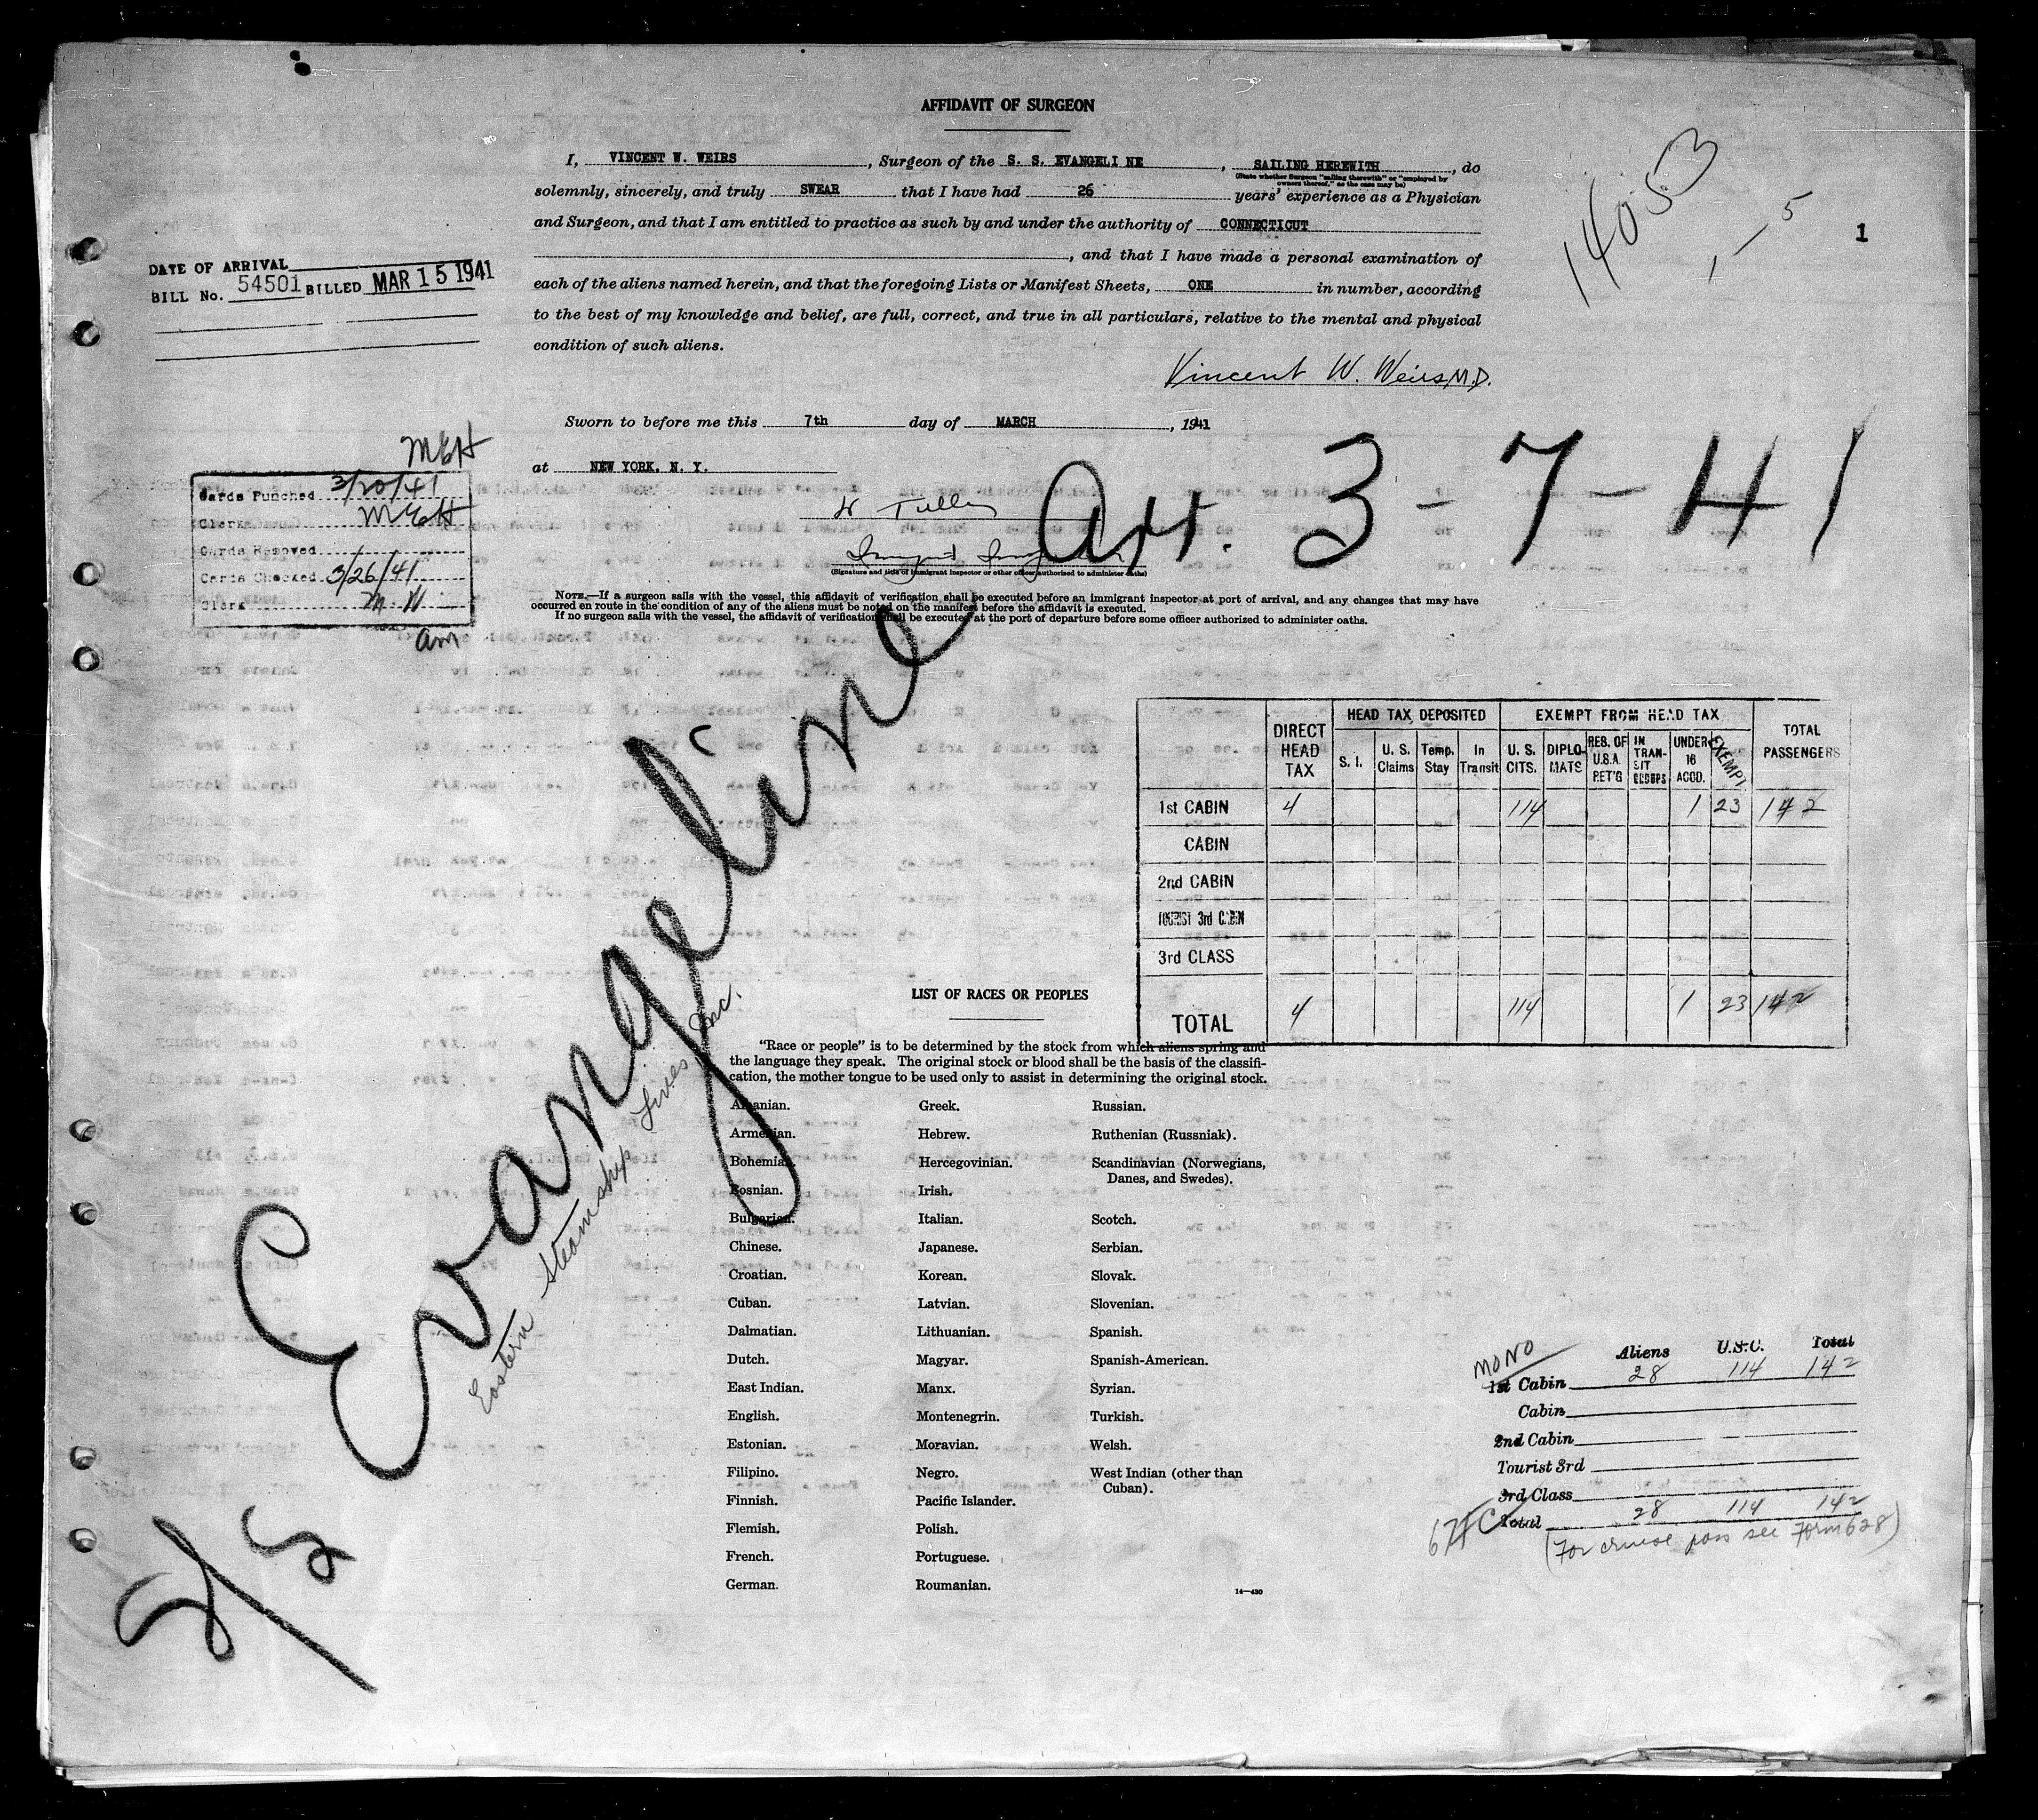 AFFIDAVIT OF SURGEON
I, VINCENT W. WEIRS, Surgeon of the S. S. EVANGELI NE, SAILING HEREWITH, do
(State whether Surgeon "sailing therewith" or "employed by owners thereof," as the case may be)
solemnly, sincerely, and truly SWEAR that I have had 26 years' experience as a Physician
and Surgeon, and that I am entitled to practice as such by and under the authority of CONNECTICUT
, and that I have made a personal examination of
each of the aliens named herein, and that the foregoing Lists or Manifest Sheets, ONE in number, according
to the best of my knowledge and belief, are full, correct, and true in all particulars, relative to the mental and physical
condition of such aliens.
Vincent W. Weirs, M.D.
Sworn to before me this 7th day of MARCH, 1941
at NEW YORK. N. Y.
Arr. 3-7-41
(Signature and title of immigrant inspector or other officer authorized to administer oaths)
NOTE.—If a surgeon sails with the vessel, this affidavit of verification shall be executed before an immigrant inspector at port of arrival, and any changes that may have
occurred en route in the condition of any of the aliens must be noted on the manifest before the affidavit is executed.
If no surgeon sails with the vessel, the affidavit of verification shall be executed at the port of departure before some officer authorized to administer oaths.
14053
1-5
1
DATE OF ARRIVAL
BILL No. 54501 BILLED MAR 15 1941
MEH
Cards Punched 3/20/41
Clerk MEH
Cards Removed
Cards Checked 3/26/41
Clerk
am
S/S Evangeline
Eastern Steamship Lines Inc.
DIRECT HEAD TAX HEAD TAX DEPOSITED EXEMPT FROM HEAD TAX TOTAL PASSENGERS
S. I. U. S. Claims Temp. Stay In Transit U. S. CITS. DIPLOMATS RES. OF U.S.A. RET'G IN TRANSIT GROUPS UNDER 16 ACCD. EXEMPT
1st CABIN 4 114 1 23 142
CABIN
2nd CABIN
TOURIST 3rd CABIN
3rd CLASS
TOTAL 4 114 1 23 142
LIST OF RACES OR PEOPLES
"Race or people" is to be determined by the stock from which aliens spring and
the language they speak. The original stock or blood shall be the basis of the classifi-
cation, the mother tongue to be used only to assist in determining the original stock.
Albanian.
Armenian.
Bohemian.
Bosnian.
Bulgarian.
Chinese.
Croatian.
Cuban.
Dalmatian.
Dutch.
East Indian.
English.
Estonian.
Filipino.
Finnish.
Flemish.
French.
German.
Greek.
Hebrew.
Hercegovinian.
Irish.
Italian.
Japanese.
Korean.
Latvian.
Lithuanian.
Magyar.
Manx.
Montenegrin.
Moravian.
Negro.
Pacific Islander.
Polish.
Portuguese.
Roumanian.
Russian.
Ruthenian (Russniak).
Scandinavian (Norwegians,
Danes, and Swedes).
Scotch.
Serbian.
Slovak.
Slovenian.
Spanish.
Spanish-American.
Syrian.
Turkish.
Welsh.
West Indian (other than
Cuban).
14—430
MONO Aliens U.S.C. Total
1st Cabin 28 114 142
Cabin
2nd Cabin
Tourist 3rd
3rd Class
Total 28 114 142
(For cruise pass see Form 628)